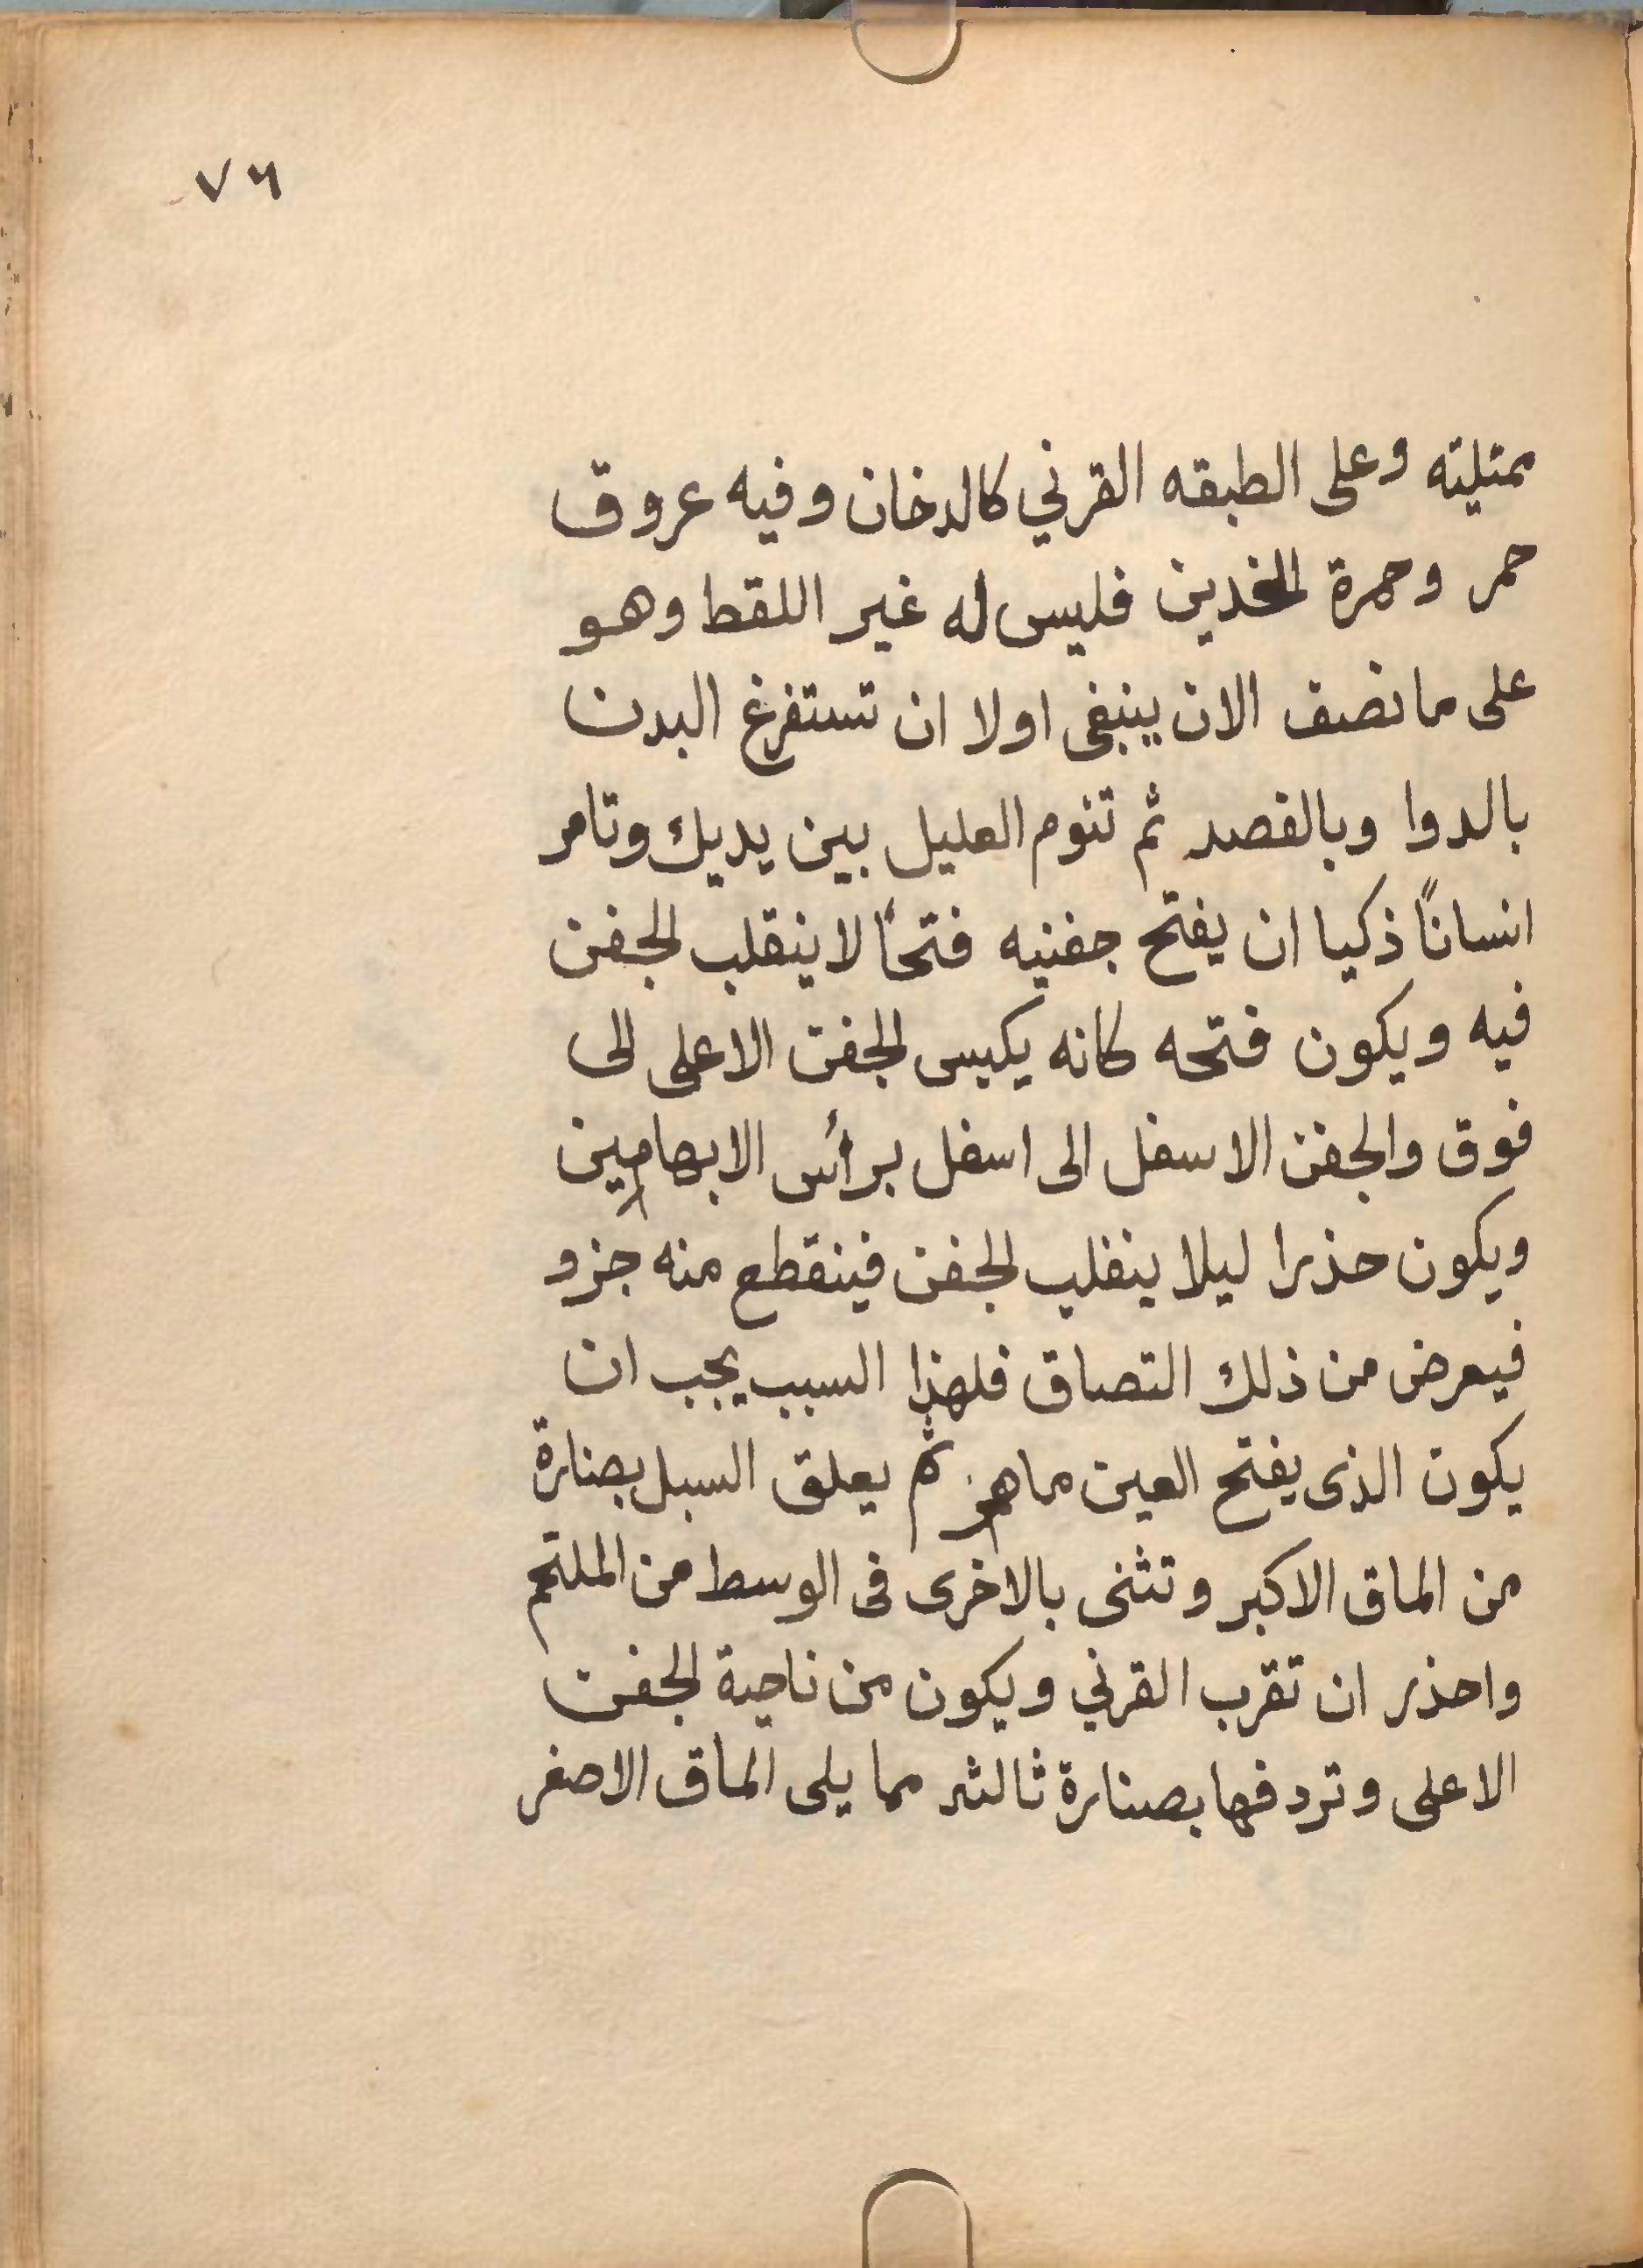 ٧٦
ممتليته وعلى الطبقه القرني كالدخان وفيه عروق
حمر وحمرة الخدين فليس له غير اللقط وهو
على ما نصف الان ينبغى اولا ان تستفرغ البدن
بالدوا وبالفصد ثم تنوم العليل بين يديك وتامر
انسانًا ذكيا ان يفتح جفنيه فتحًا لا ينقلب الجفن
فيه ويكون فتحه كانه يكبس الجفن الاعلى الى
فوق والجفن الاسفل الى اسفل برأس الابهامين
ويكون حذرا ليلا ينقلب الجفن فينقطع منه جزو
فيعرض من ذلك التصاق فلهذا السبب يجب ان
يكون الذى يفتح العين ماهر ثم يعلق السبل بصنارة
من الماق الاكبر وتثنى بالاخرى فى الوسط من الملتحم
واحذر ان تقرب القرني ويكون من ناحية الجفن
الاعلى وتردفها بصنارة ثالثه مما يلى الماق الاصغر